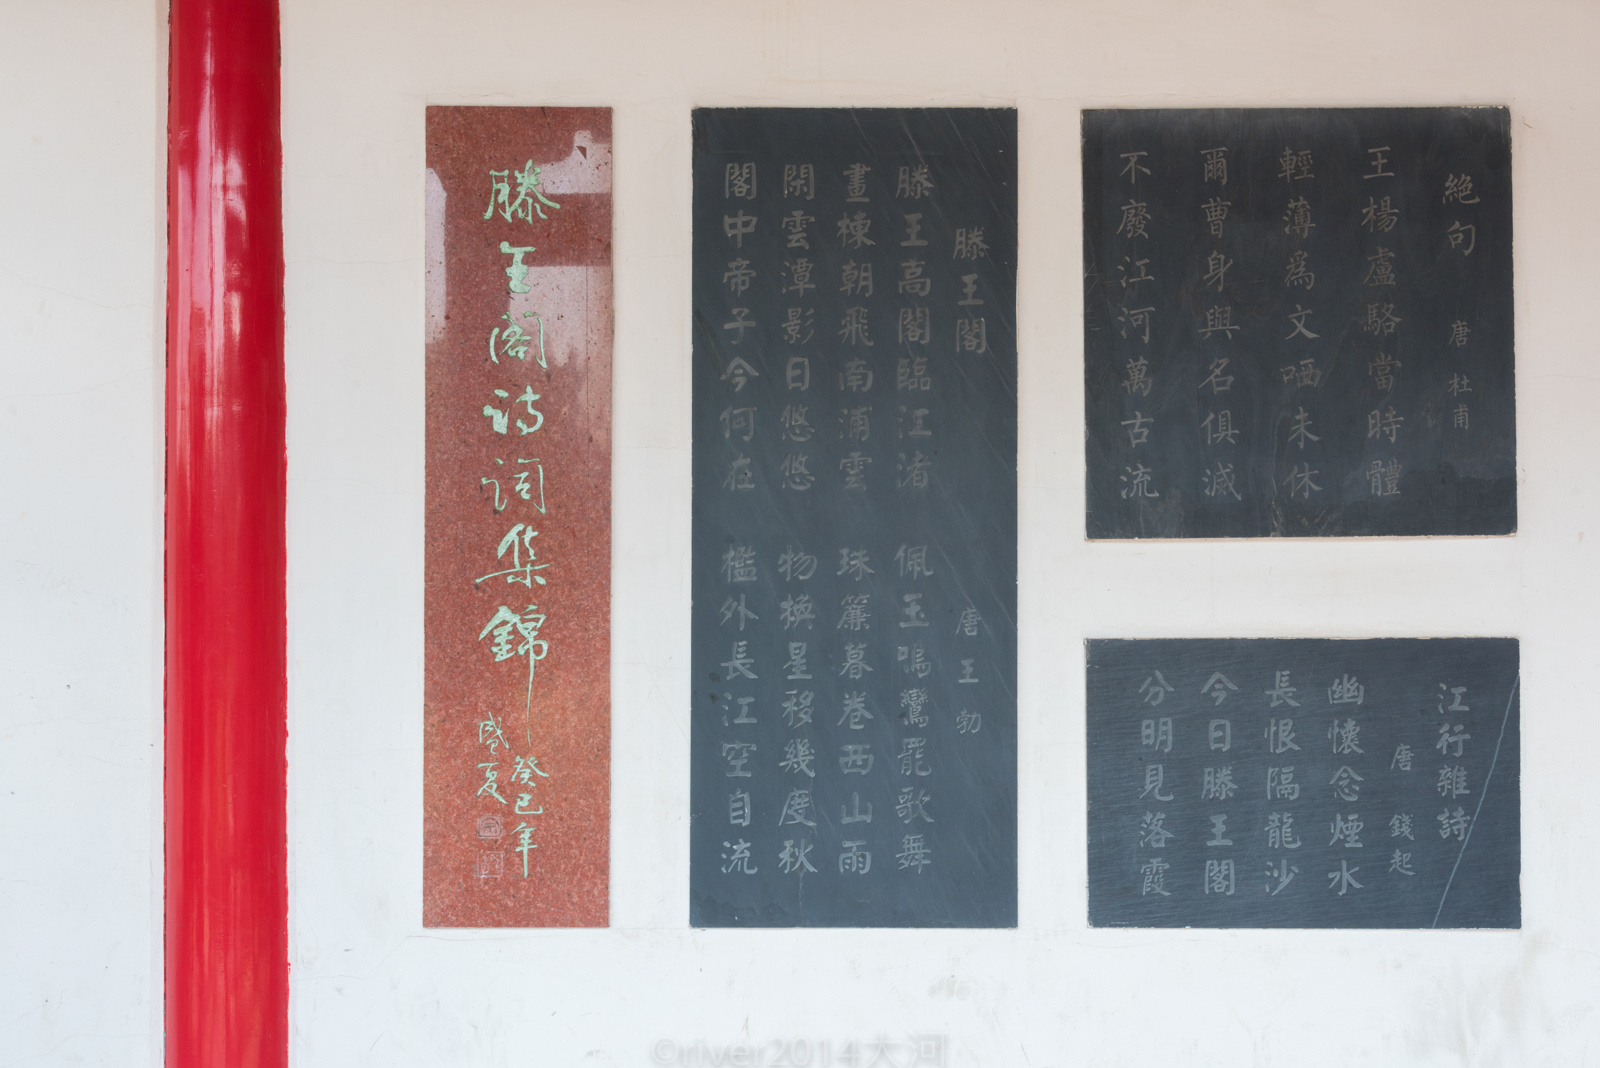 滕王阁诗词集錦
癸巳年
盛夏
滕王閣 唐 王勃
滕王高閣臨江渚 佩玉鳴鸞罷歌舞
畫棟朝飛南浦雲 珠簾暮卷西山雨
閑雲潭影日悠悠 物換星移幾度秋
閣中帝子今何在 檻外長江空自流
絕句 唐 杜甫
王楊盧駱當時體
輕薄為文哂未休
爾曹身與名俱滅
不廢江河萬古流
江行雜詩
唐 錢起
幽懷念煙水
長恨隔龍沙
今日滕王閣
分明見落霞
©river2014大河